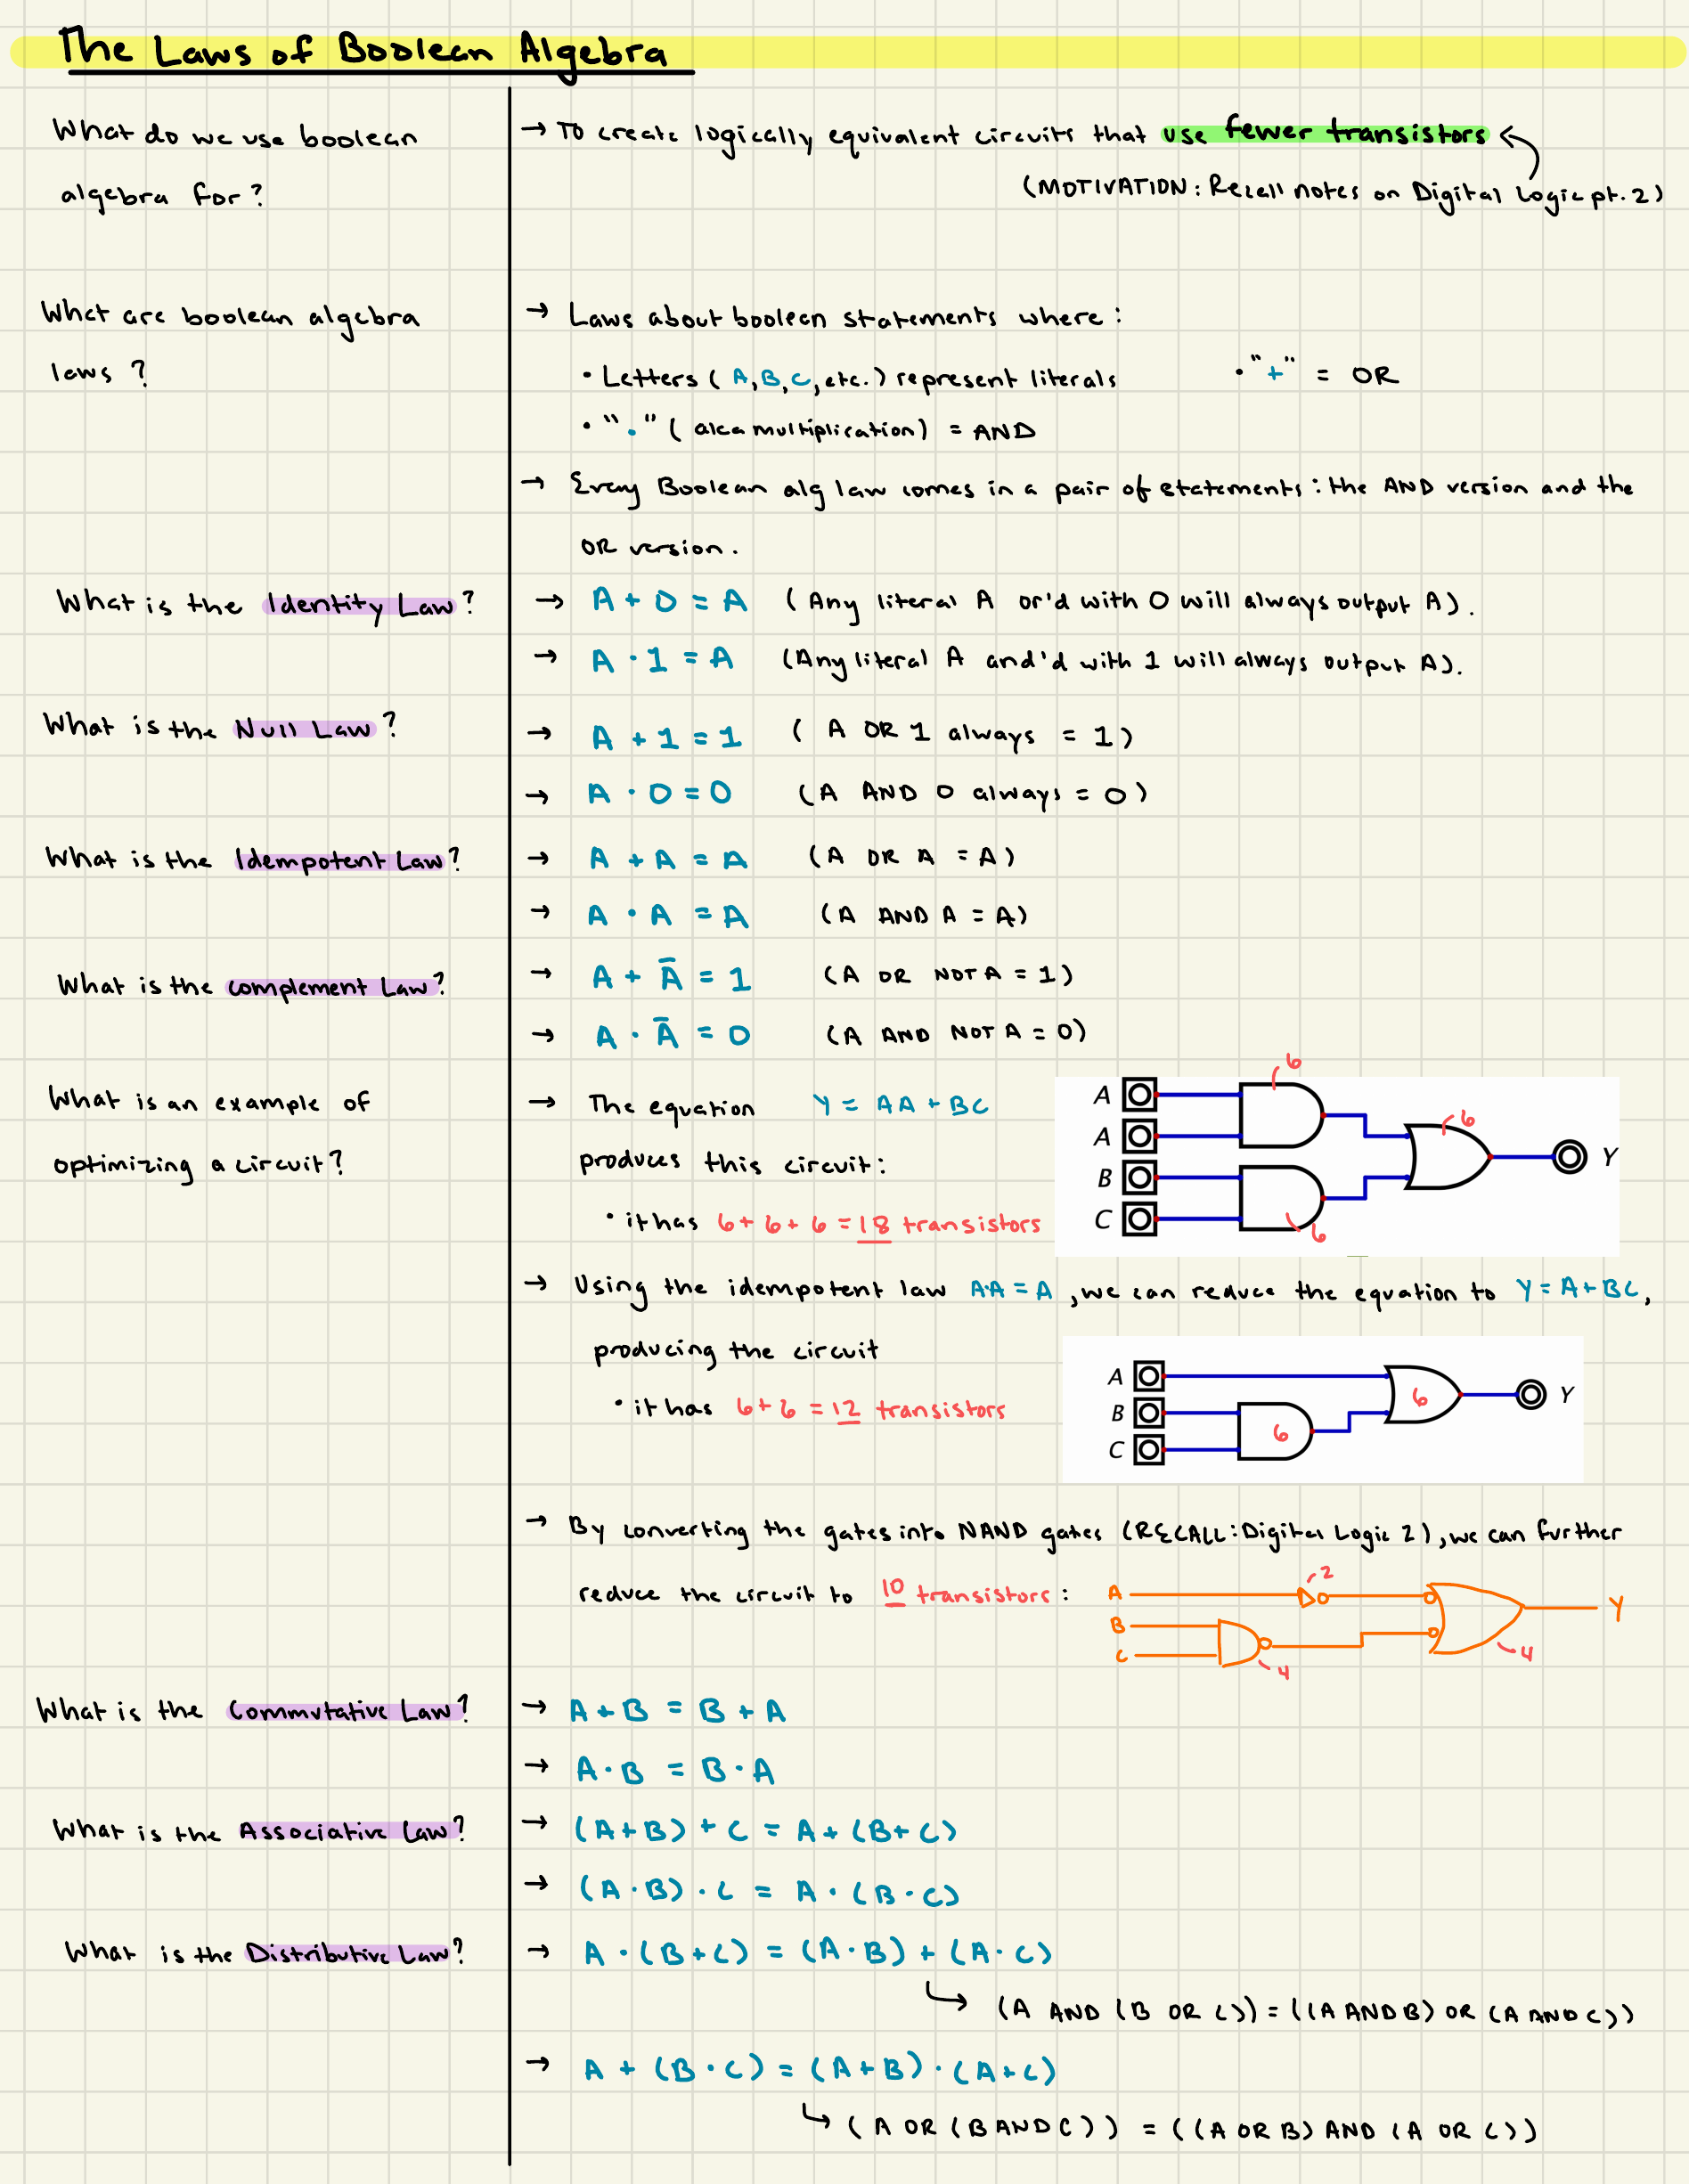 The Laws of Boolean Algebra
What do we use boolean
algebra for?
→ To create logically equivalent circuits that use fewer transistors
(MOTIVATION: Recall notes on Digital Logic pt. 2)
What are boolean algebra
laws?
→ Laws about boolean statements where:
• Letters (A, B, C, etc.) represent literals
• "+" = OR
• "." (aka multiplication) = AND
→ Every Boolean alg law comes in a pair of statements: the AND version and the
OR version.
What is the Identity Law?
→ A + 0 = A (Any literal A or'd with 0 will always output A).
→ A · 1 = A (Any literal A and'd with 1 will always output A).
What is the Null Law?
→ A + 1 = 1 (A OR 1 always = 1)
→ A · 0 = 0 (A AND 0 always = 0)
What is the Idempotent Law?
→ A + A = A (A OR A = A)
→ A · A = A (A AND A = A)
What is the complement Law?
→ A + Ā = 1 (A OR NOT A = 1)
→ A · Ā = 0 (A AND NOT A = 0)
What is an example of
optimizing a circuit?
→ The equation Y = AA + BC
produces this circuit:
• it has 6 + 6 + 6 = 18 transistors
6
A
A
6
B
C
6
Y
→ Using the idempotent law A·A = A, we can reduce the equation to Y = A + BC,
producing the circuit
• it has 6 + 6 = 12 transistors
A
B
C
6
6
Y
→ By converting the gates into NAND gates (RECALL: Digital Logic 2), we can further
reduce the circuit to 10 transistors:
A
B
C
2
4
4
Y
What is the Commutative Law?
→ A + B = B + A
→ A · B = B · A
What is the Associative Law?
→ (A + B) + C = A + (B + C)
→ (A · B) · C = A · (B · C)
What is the Distributive Law?
→ A · (B + C) = (A · B) + (A · C)
↳ (A AND (B OR C)) = ((A AND B) OR (A AND C))
→ A + (B · C) = (A + B) · (A + C)
↳ (A OR (B AND C)) = ((A OR B) AND (A OR C))